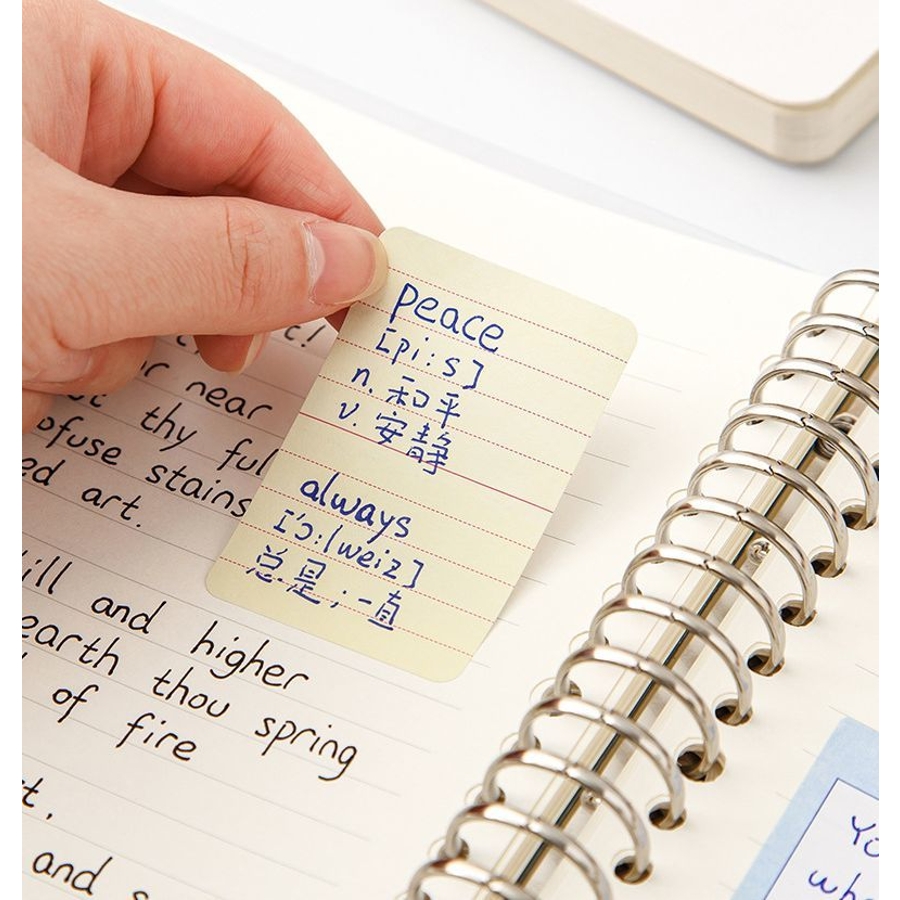 peace
[pi:s]
n. 和平
v. 安静
always
总是;一直
near
thy ful
stains
ed art.
and higher
earth thou spring
of fire
and